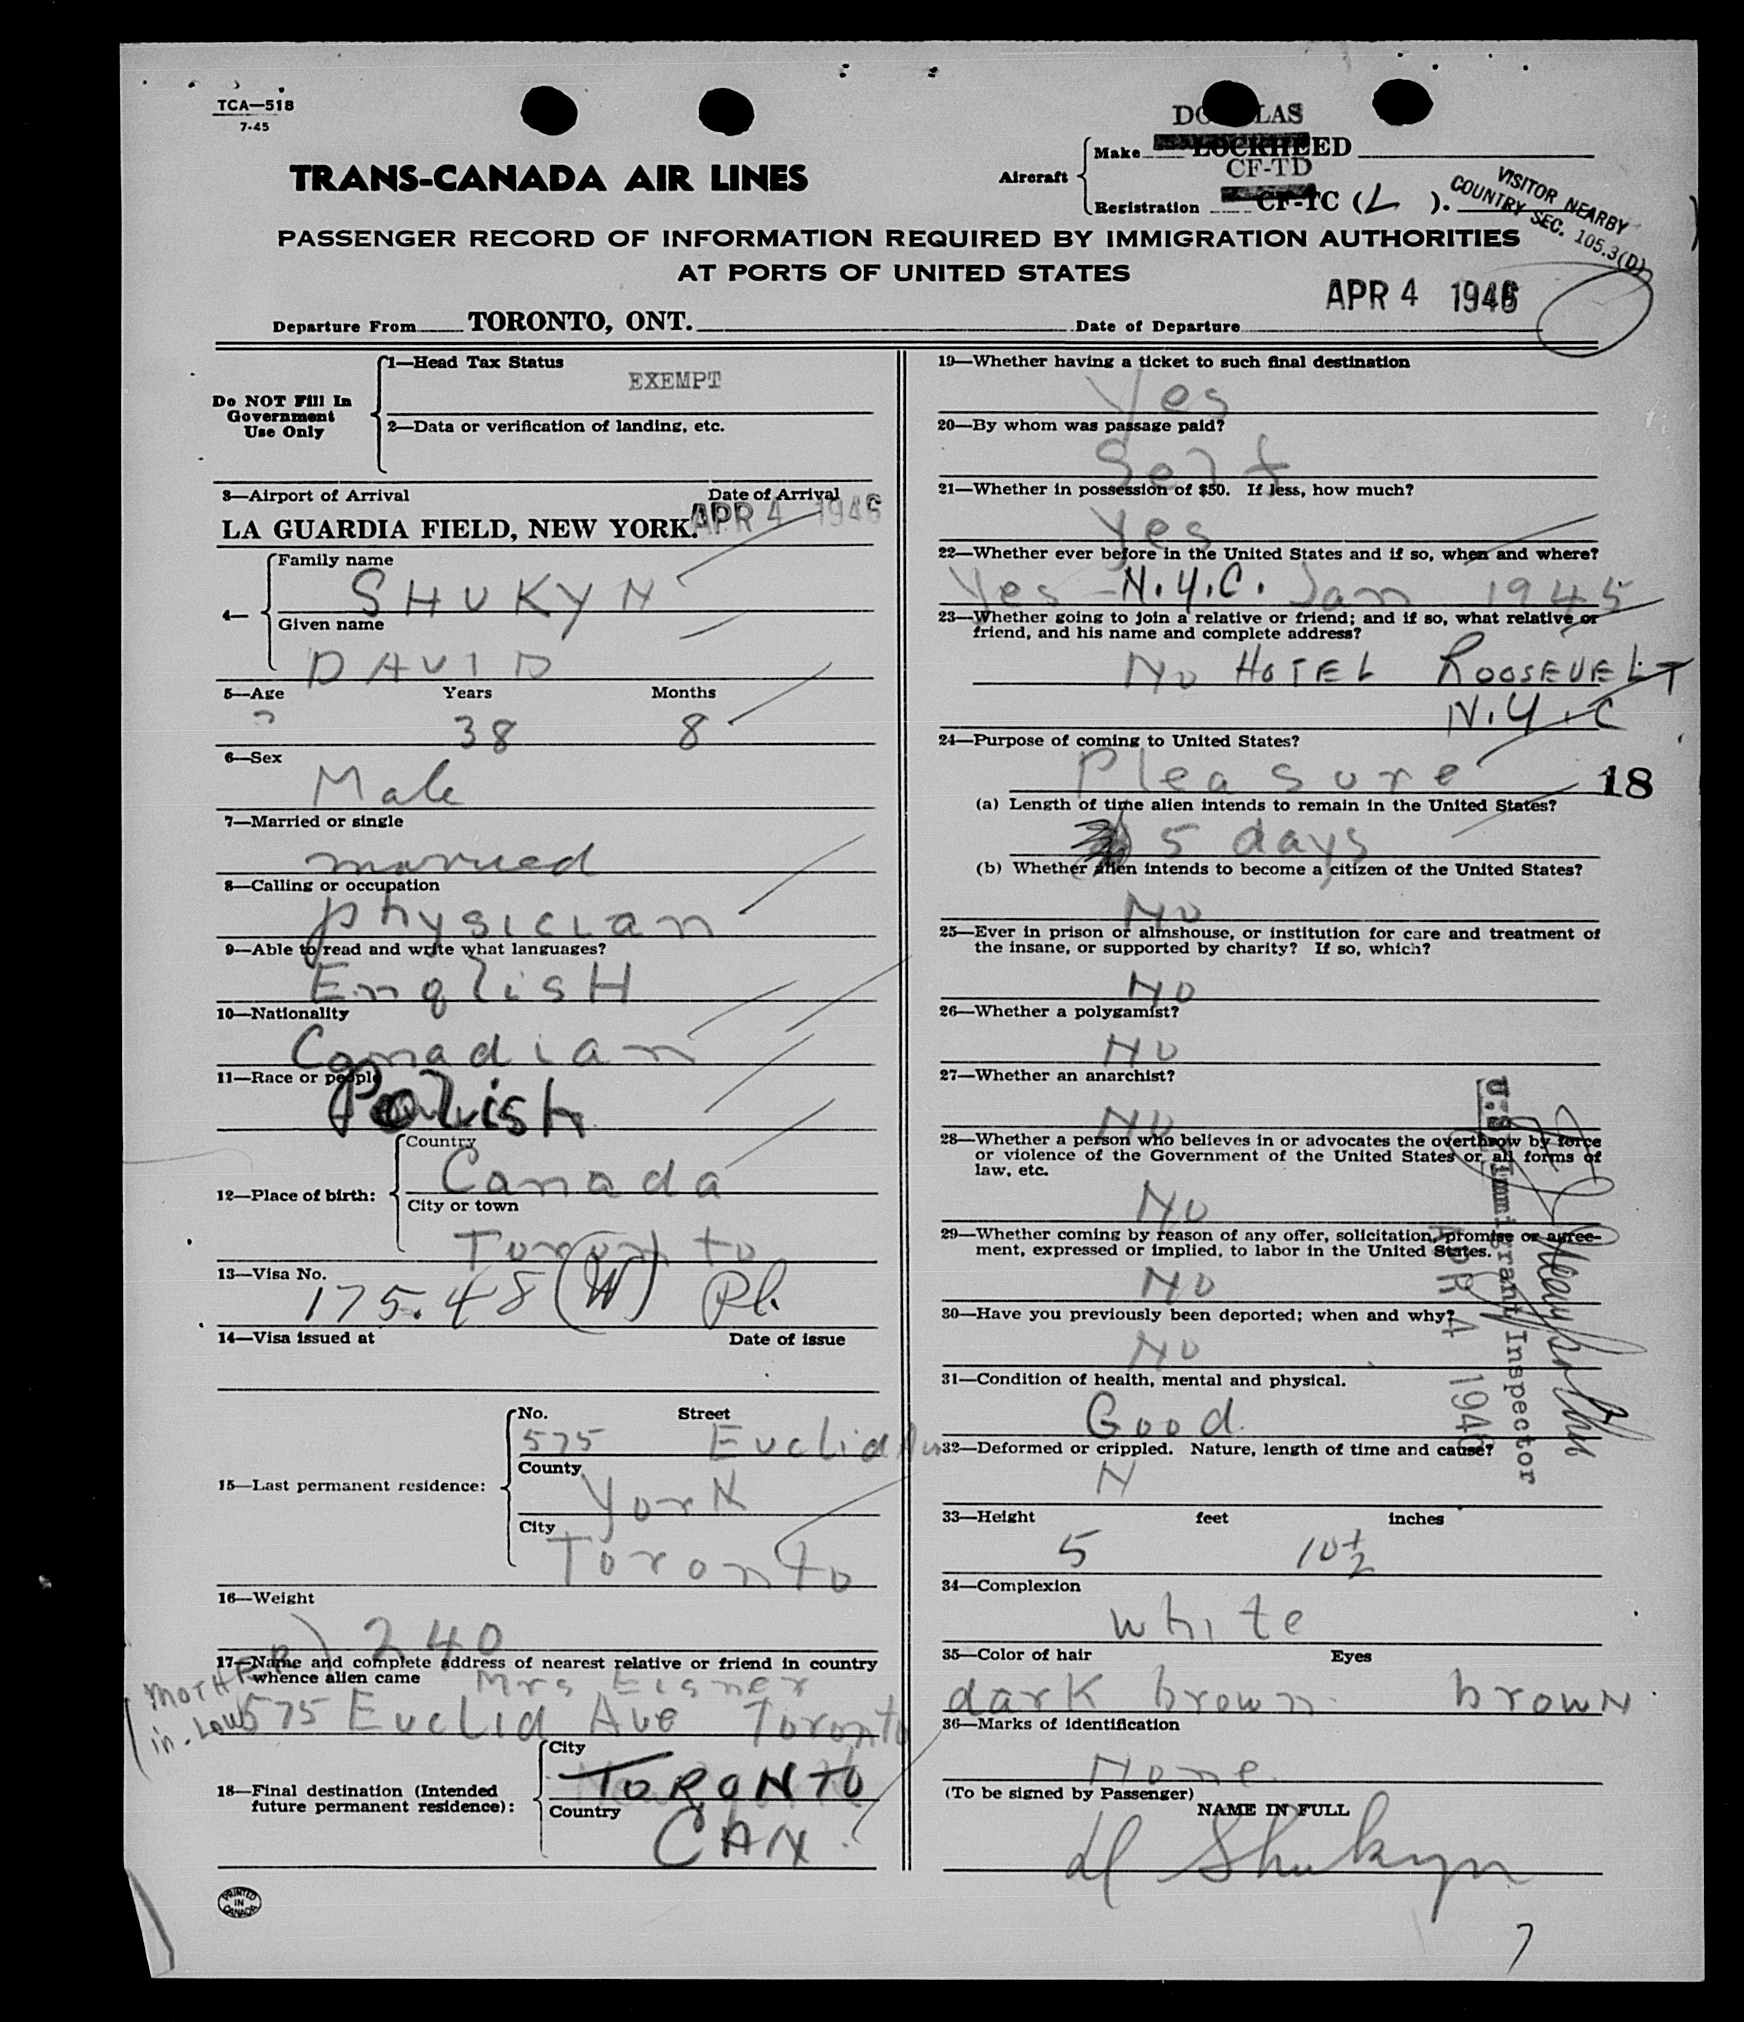 TCA—518
7-45
TRANS-CANADA AIR LINES
DOUGLAS
Aircraft
Make LOCKHEED
CF-TD
Registration CF-TC (L ).
VISITOR NEARBY
COUNTRY SEC. 105.3(D)
PASSENGER RECORD OF INFORMATION REQUIRED BY IMMIGRATION AUTHORITIES
AT PORTS OF UNITED STATES
APR 4 1946
Departure From TORONTO, ONT. Date of Departure
Do NOT Fill In
Government
Use Only
1—Head Tax Status
EXEMPT
2—Data or verification of landing, etc.
3—Airport of Arrival Date of Arrival
LA GUARDIA FIELD, NEW YORK. APR 4 1946
4—
Family name
SHUKYN
Given name
DAVID
5—Age Years Months
38 8
6—Sex
Male
7—Married or single
married
8—Calling or occupation
physician
9—Able to read and write what languages?
English
10—Nationality
Canadian
11—Race or people
Polish
12—Place of birth:
Country
Canada
City or town
Toronto
13—Visa No.
175.48 (W) Pl.
14—Visa issued at Date of issue
15—Last permanent residence:
No. Street
575 Euclid Av
County
York
City
Toronto
16—Weight
240
17—Name and complete address of nearest relative or friend in country
whence alien came Mrs Eisner
(MOTHER in-Law) 575 Euclid Ave Toronto
18—Final destination (Intended
future permanent residence):
City
TORONTO
Country
CAN.
PRINTED
IN
CANADA
19—Whether having a ticket to such final destination
Yes
20—By whom was passage paid?
Self
21—Whether in possession of $50. If less, how much?
Yes
22—Whether ever before in the United States and if so, when and where?
Yes - N.Y.C. Jan 1945
23—Whether going to join a relative or friend; and if so, what relative or
friend, and his name and complete address?
No HOTEL ROOSEVELT
N.Y.C
24—Purpose of coming to United States?
Pleasure
18
(a) Length of time alien intends to remain in the United States?
5 days
(b) Whether alien intends to become a citizen of the United States?
No
25—Ever in prison or almshouse, or institution for care and treatment of
the insane, or supported by charity? If so, which?
No
26—Whether a polygamist?
No
27—Whether an anarchist?
No
28—Whether a person who believes in or advocates the overthrow by force
or violence of the Government of the United States or all forms of
law, etc.
No
29—Whether coming by reason of any offer, solicitation, promise or agree-
ment, expressed or implied, to labor in the United States.
No
30—Have you previously been deported; when and why?
No
31—Condition of health, mental and physical.
Good.
32—Deformed or crippled. Nature, length of time and cause?
N
U.S. Immigrant Inspector
APR 4 1946
33—Height feet inches
5 10½
34—Complexion
white
35—Color of hair Eyes
dark brown brown
36—Marks of identification
None
(To be signed by Passenger)
NAME IN FULL
D Shukyn
7